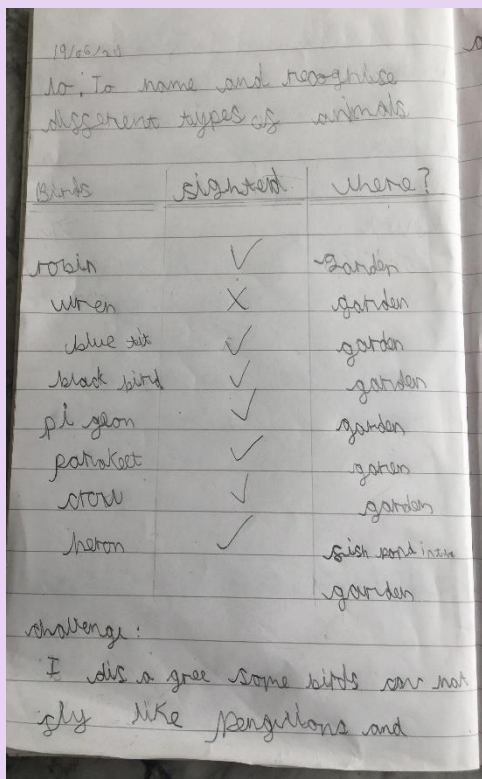 19/06/20
lo: To name and recognise
different types of animals
Birds sighted where?
robin ✓ garden
wren X garden
blue tit ✓ garden
black bird ✓ garden
pi geon ✓ garden
parakeet ✓ garden
crow ✓ garden
heron ✓ fish pond in
garden
challenge:
I dis a gree some birds can not
fly like penguions and